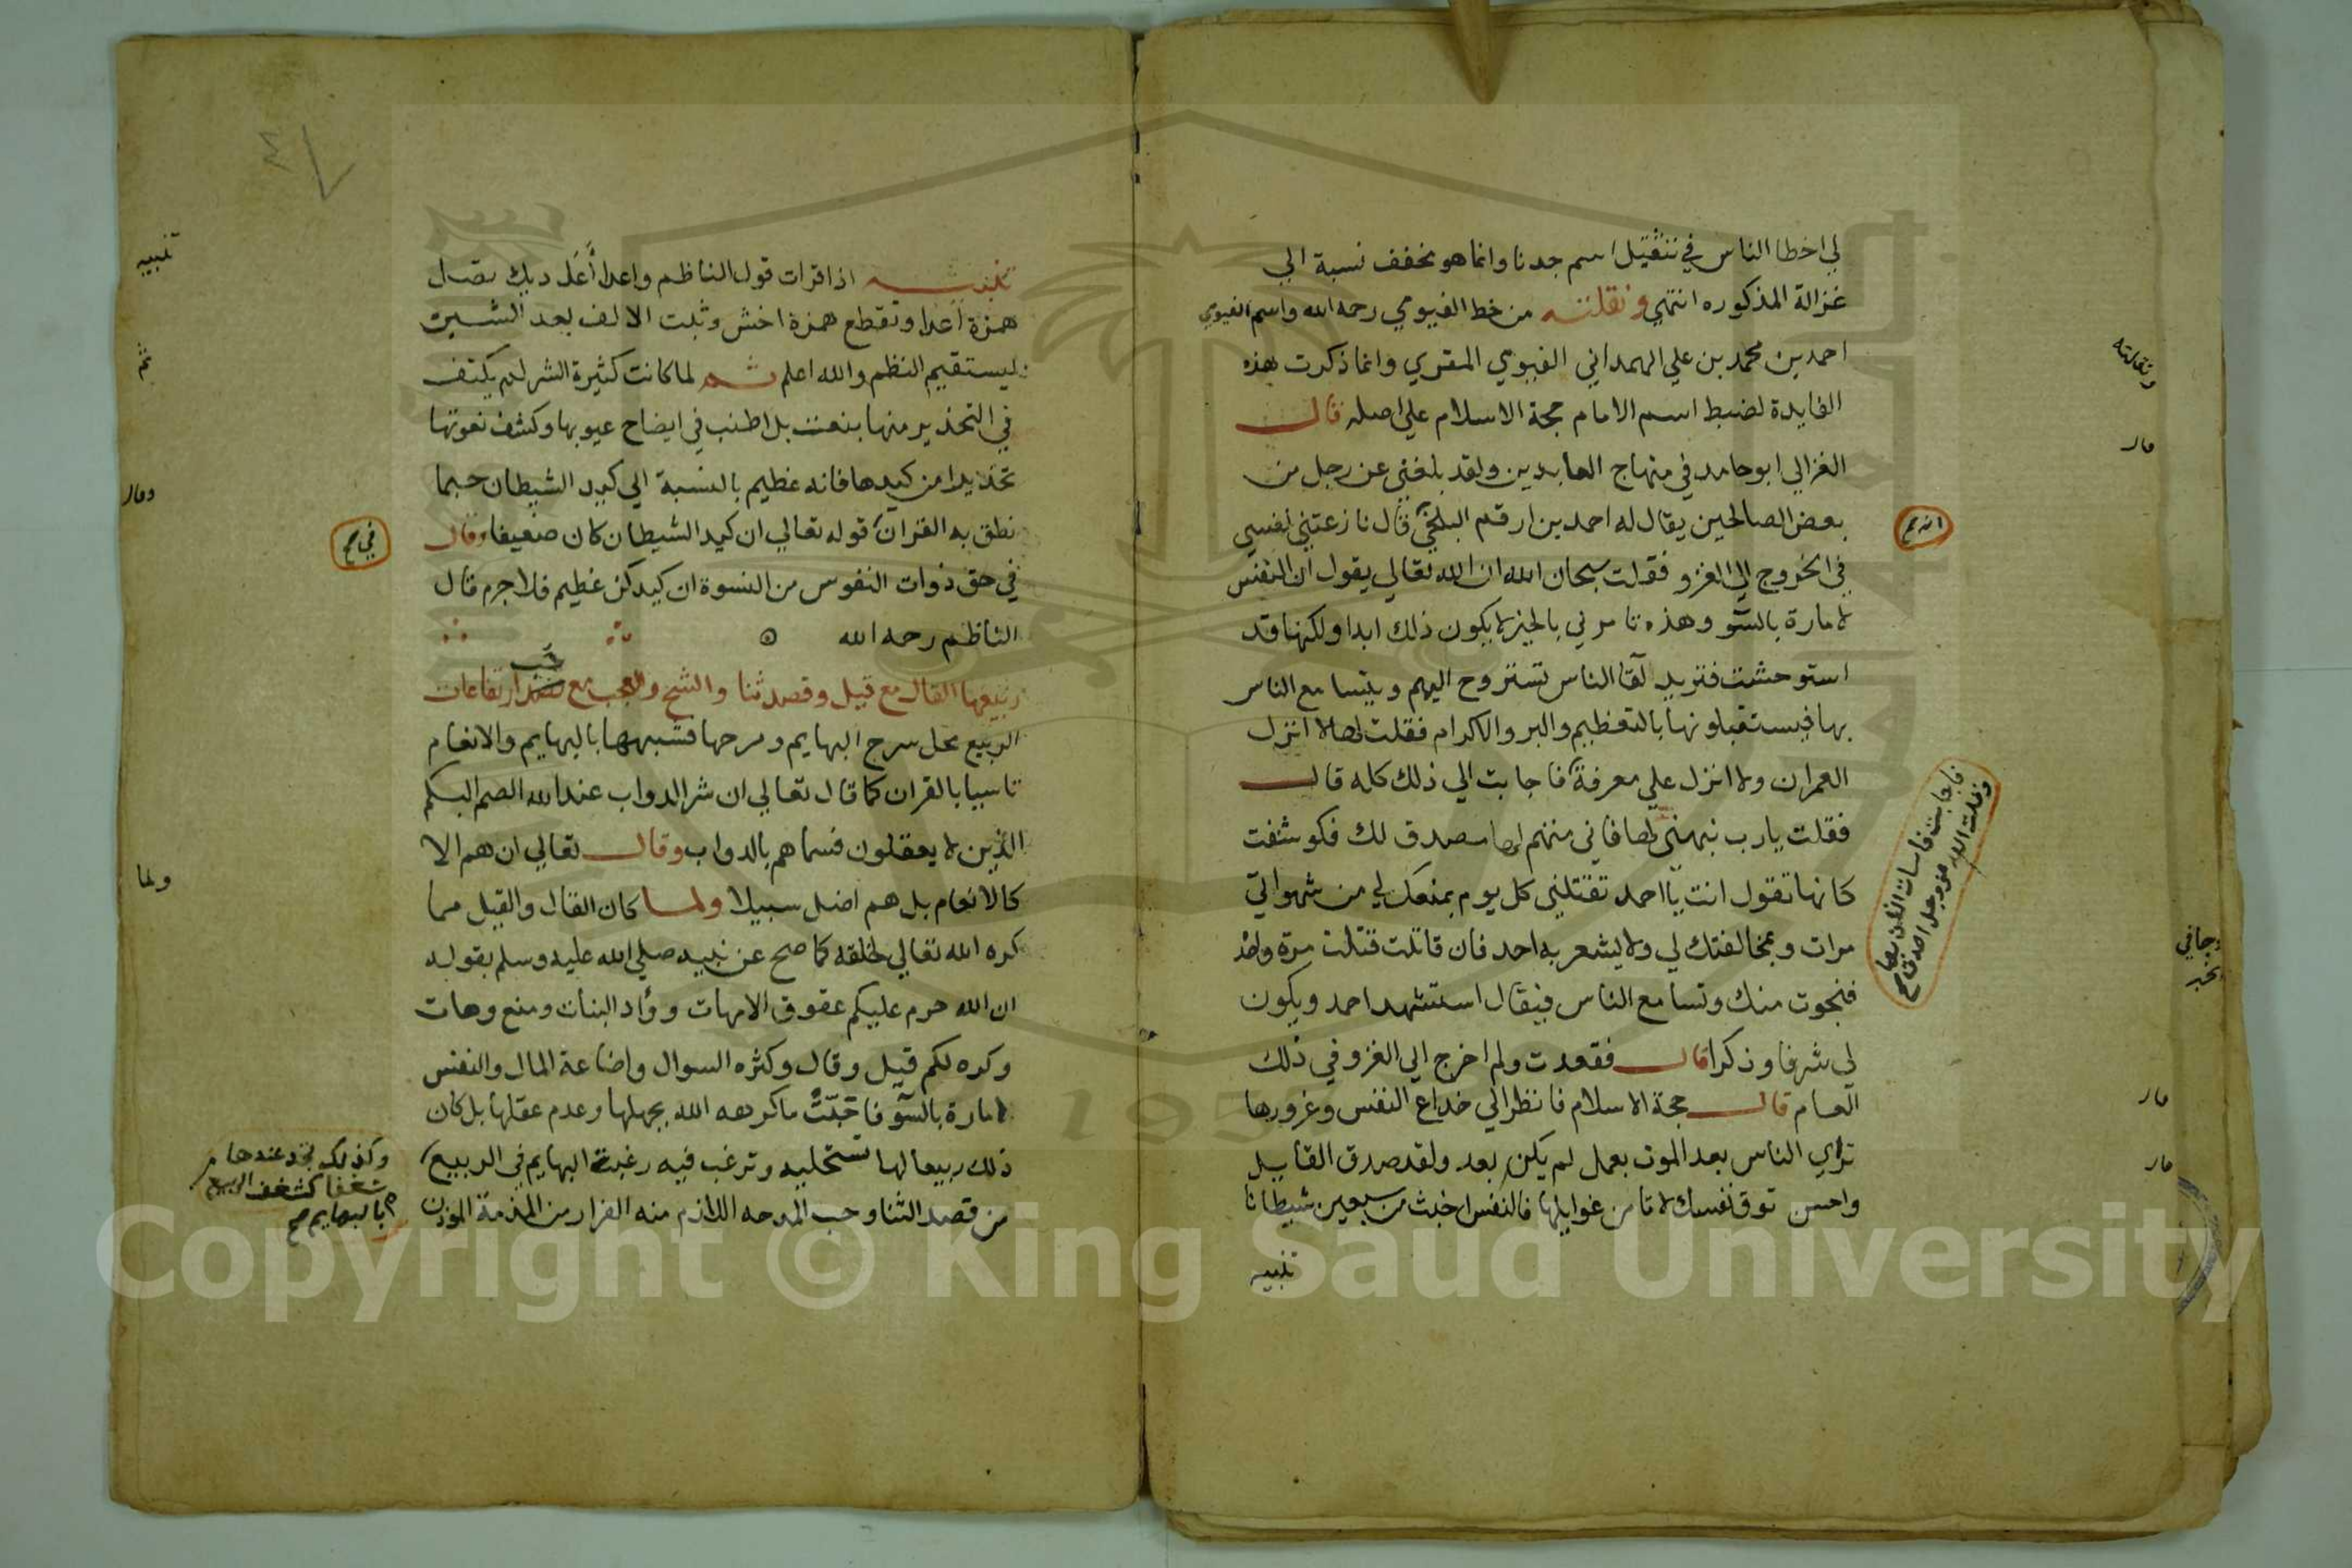 لي اخطا الناس في تثقيل اسم جدنا وانما هو مخفف نسبة الي
غزالة المذكوره انتهي ونقلته من خط الفيومي رحمه الله واسم الفيومي
احمد بن محمد بن علي الهمداني الفيومي المقري وانما ذكرت هذه
الفايدة لضبط اسم الامام حجة الاسلام علي اصله قال
الغزالي ابو حامد في منهاج العابدين ولقد بلغني عن رجل من
بعض الصالحين يقال له احمد بن ارقم البلخي قال نازعتني نفسي
في الخروج الي الغزو فقولت سبحان الله ان الله تعالي يقول ان النفس
لامارة بالسو وهذه تامرني بالخير لا يكون ذلك ابدا ولكنها قد
استوحشت فتريد لقا الناس تستروح اليهم ويتسامع الناس
بها فيستقبلونها بالتعظيم والبر والاكرام فقلت لها لا انزل
العمران ولا انزل علي معرفة فاجابت الي ذلك كله قال
فقلت يارب نبهني لها فاني متهم لها مصدق لك فكوشفت
كانها تقول انت يا احمد تقتلني كل يوم بمنعك لي من شهواتي
مرات وبمخالفتك لي ولا يشعر به احد فان قاتلت قتلت مرة واحدة
فنجوت منك وتسامع الناس فيقال استشهد احمد ويكون
لي شرفا وذكرا قال فقعدت ولم اخرج الي الغزو في ذلك
العام قال حجة الاسلام فانظر الي خداع النفس وغرورها
تراي الناس بعد الموت بعمل لم يكن بعد ولقد صدق القايل
واحسن توق نفسك لا تامن غوايلها فالنفس اخبث من سبعين شيطانا
تنبيه
ونقلته
قال
قال
قال
تنبيه اذا قرات قول الناظم واعدا أعَل ديك تصل
همزة أعدا وتقطع همزة اخش وثبت الالف بعد الشين
ليستقيم النظم والله اعلم ثم لما كانت كثيرة الشر لم يكتف
في التحذير منها بنعت بل اطنب في ايضاح عيوبها وكشف نعوتها
تحذيرا من كيدها فانه عظيم بالنسبة الي كيد الشيطان حبما
نطق به القران قوله تعالي ان كيد الشيطان كان ضعيفا وقال
في حق ذوات النفوس من النسوة ان كيدكن عظيم فلا جرم قال
الناظم رحمه الله
ربيعها القال مع قيل وقصد ثنا والشح والعجب مع ارتفاعات
الربيع محل سرح البهايم ومرحها فشبهها بالبهايم والانعام
تاسيا بالقران كما قال تعالي ان شر الدواب عند الله الصم البكم
الذين لا يعقلون فسماهم بالدواب وقال تعالي ان هم الا
كالانعام بل هم اضل سبيلا ولما كان القال والقيل مما
كره الله تعالي لخلقه كما صح عن نبيه صلي الله عليه وسلم بقوله
ان الله حرم عليكم عقوق الامهات ووأد البنات ومنع وهات
وكره لكم قيل وقال وكثره السوال واضاعة المال والنفس
لامارة بالسو فاحبت ما كرهه الله بجهلها وعدم عقلها بل كان
ذلك ربيعا لها تستحليه وترغب فيه رغبة البهايم في الربيع
من قصد الثنا وحب المدحه اللازم منه الفرار من المذمة
تنبيه
ثم
وقال
في صح
ولما
وكذلك تجد عندها
شغفا كشغف الربيع
بالبهايم صح
Copyright © King Saud University